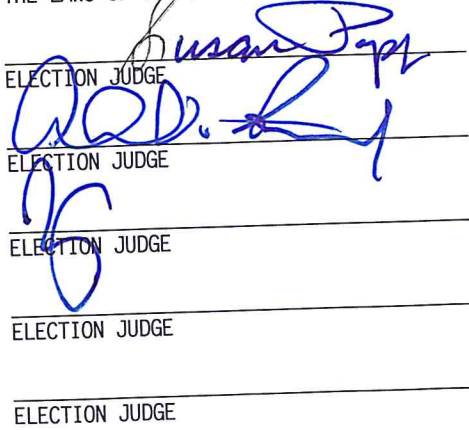 Susan Papp
ELECTION JUDGE
ELECTION JUDGE
ELECTION JUDGE
ELECTION JUDGE
ELECTION JUDGE